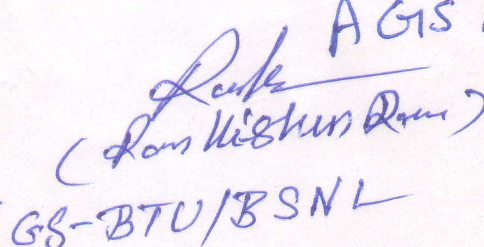 AGS
(Ram Kishun Ram)
GS-BTU/BSNL